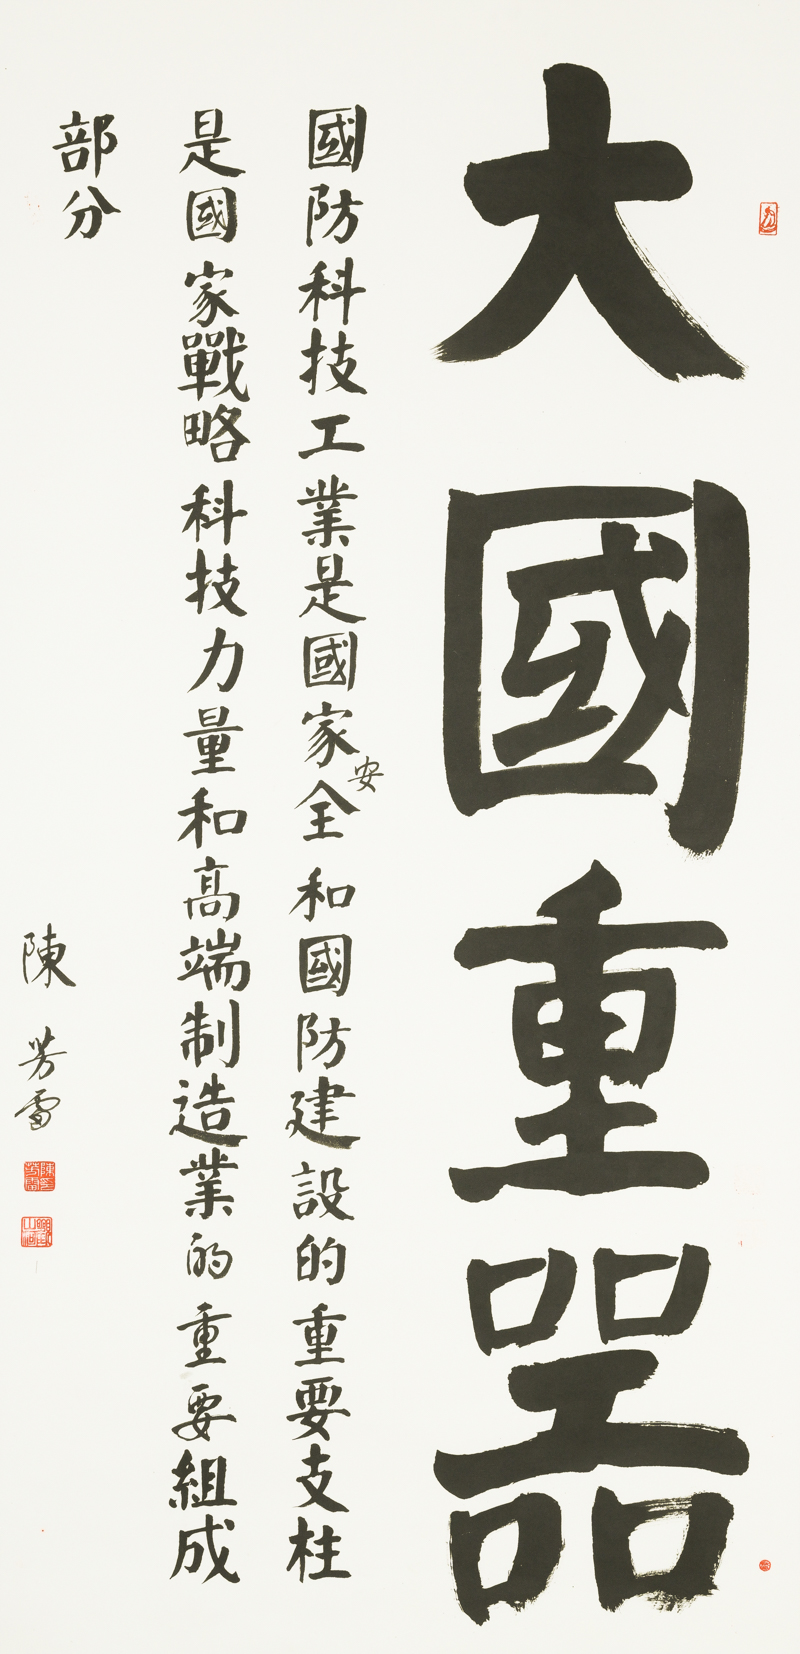 大國重器
國防科技工業是國家安全和國防建設的重要支柱
是國家戰略科技力量和高端制造業的重要組成
部分
陳芳雷